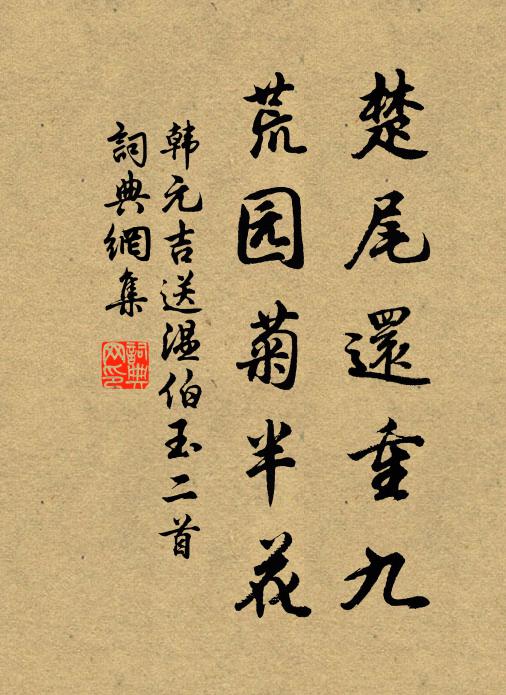 楚尾還重九
荒园菊半花
韩元吉送溫伯玉二首
詞典網集
詞典網印